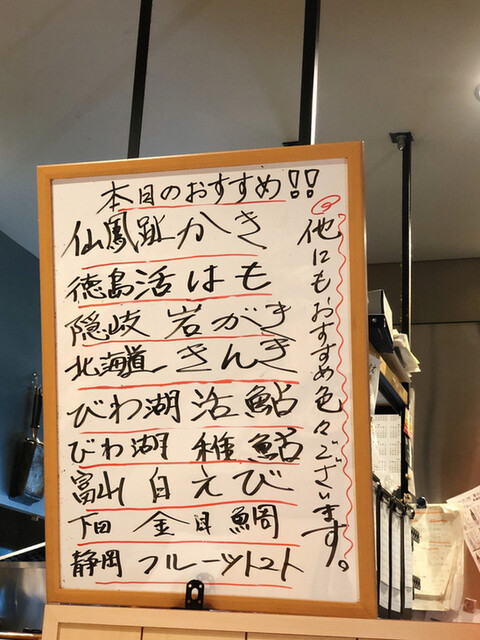 本日のおすすめ!!
仙鳳趾かき
徳島活はも
隠岐岩がき
北海道きんき
びわ湖活鮎
びわ湖稚鮎
富山白えび
下田金目鯛
静岡フルーツトマト
他にもおすすめ色々ございます。